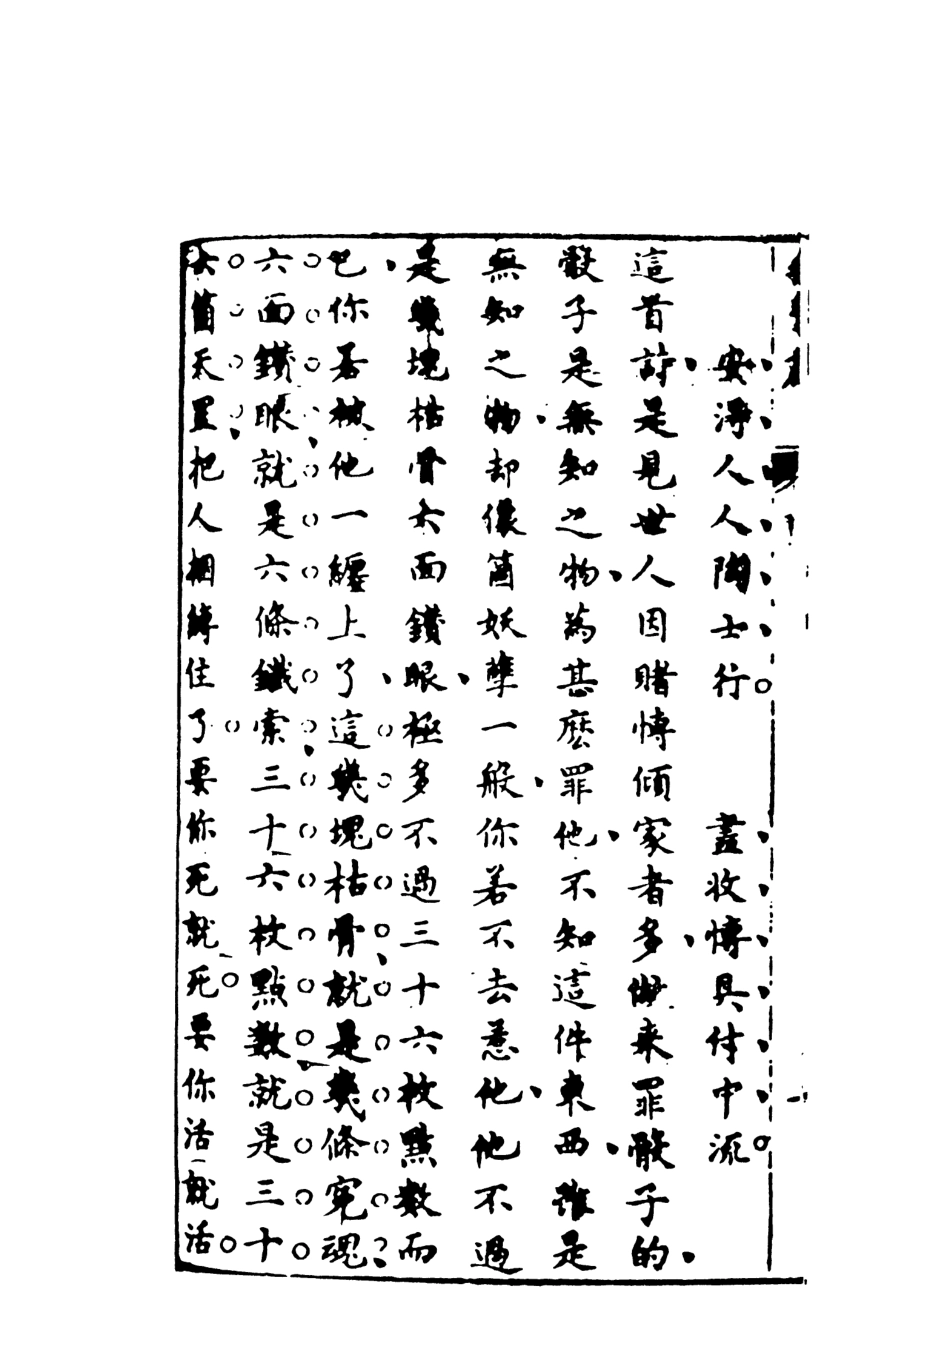 安得人人陶士行　盡收愽具付中流
這首詩是見世人因賭愽傾家者多做来罪骰子的
骰子是無知之物為甚麽罪他不知這件東西雖是
無知之物却像箇妖孽一般你若不去惹他他不過
是幾塊枯骨六面鑽眼極多不過三十六枚點數而
已你若被他一纏上了這幾塊枯骨就是幾條寃魂
六面鑽眼就是六條鐵索三十六枚點數就是三十
六箇天罡把人捆縛住了要你死就死要你活就活